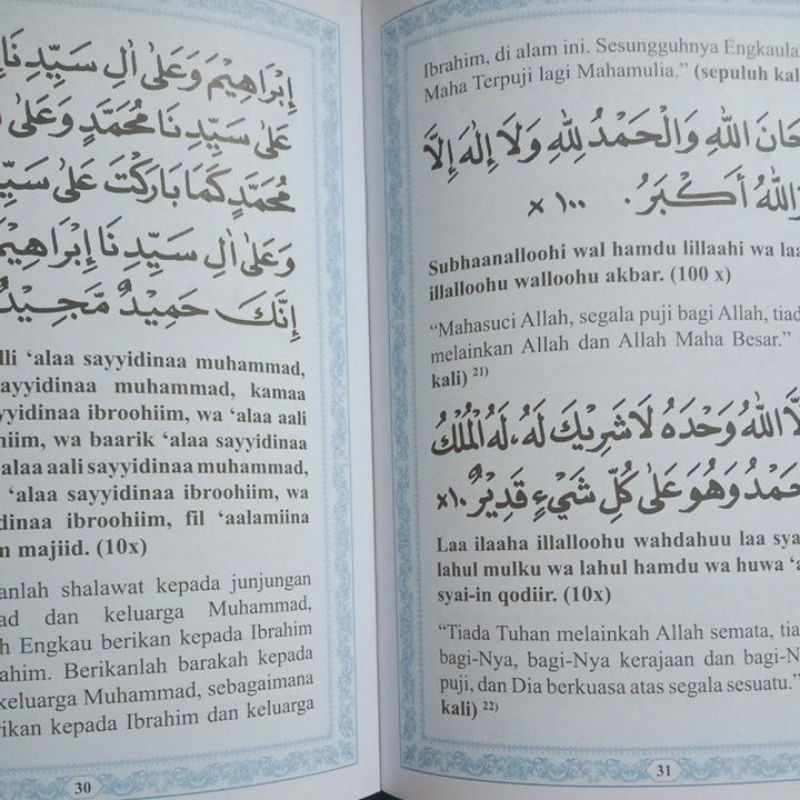 إِبْرَاهِيْمَ وَعَلٰى اٰلِ سَيِّدِنَا
عَلٰى سَيِّدِنَا مُحَمَّدٍ وَعَلٰى
مُحَمَّدٍ كَمَا بَارَكْتَ عَلٰى
وَعَلٰى اٰلِ سَيِّدِنَا إِبْرَاهِيْمَ
إِنَّكَ حَمِيْدٌ مَّجِيْدٌ
lli ‘alaa sayyidinaa muhammad,
ayyidinaa muhammad, kamaa
yyidinaa ibroohiim, wa ‘alaa aali
hiim, wa baarik ‘alaa sayyidinaa
alaa aali sayyidinaa muhammad,
‘alaa sayyidinaa ibroohiim, wa
dinaa ibroohiim, fil ‘aalamiina
n majiid. (10x)
anlah shalawat kepada junjungan
ad dan keluarga Muhammad,
h Engkau berikan kepada Ibrahim
rahim. Berikanlah barakah kepada
keluarga Muhammad, sebagaimana
rikan kepada Ibrahim dan keluarga
30
Ibrahim, di alam ini. Sesungguhnya Engkaula
Maha Terpuji lagi Mahamulia.” (sepuluh kal
حَانَ اللهِ وَالْحَمْدُ لِلّٰهِ وَلَا إِلٰهَ إِلَّا
وَاللهُ أَكْبَرُ. ×١٠٠
Subhaanalloohi wal hamdu lillaahi wa laa
illalloohu walloohu akbar. (100 x)
“Mahasuci Allah, segala puji bagi Allah, tiad
melainkan Allah dan Allah Maha Besar.”
kali) 21)
لَّا اللهُ وَحْدَهُ لَا شَرِيْكَ لَهُ، لَهُ الْمُلْكُ
حَمْدُ وَهُوَ عَلٰى كُلِّ شَيْءٍ قَدِيْرٌ ×١٠
Laa ilaaha illalloohu wahdahuu laa sya
lahul mulku wa lahul hamdu wa huwa ‘a
syai-in qodiir. (10x)
“Tiada Tuhan melainkah Allah semata, tia
bagi-Nya, bagi-Nya kerajaan dan bagi-N
puji, dan Dia berkuasa atas segala sesuatu.”
kali) 22)
31